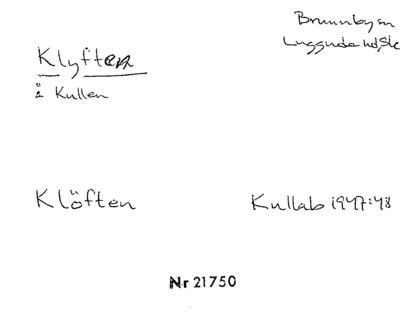 Brunnby sn
Luggude hd, Sk
Klyften
å Kullen
Klöften
Kullab 1947:48
Nr 21750